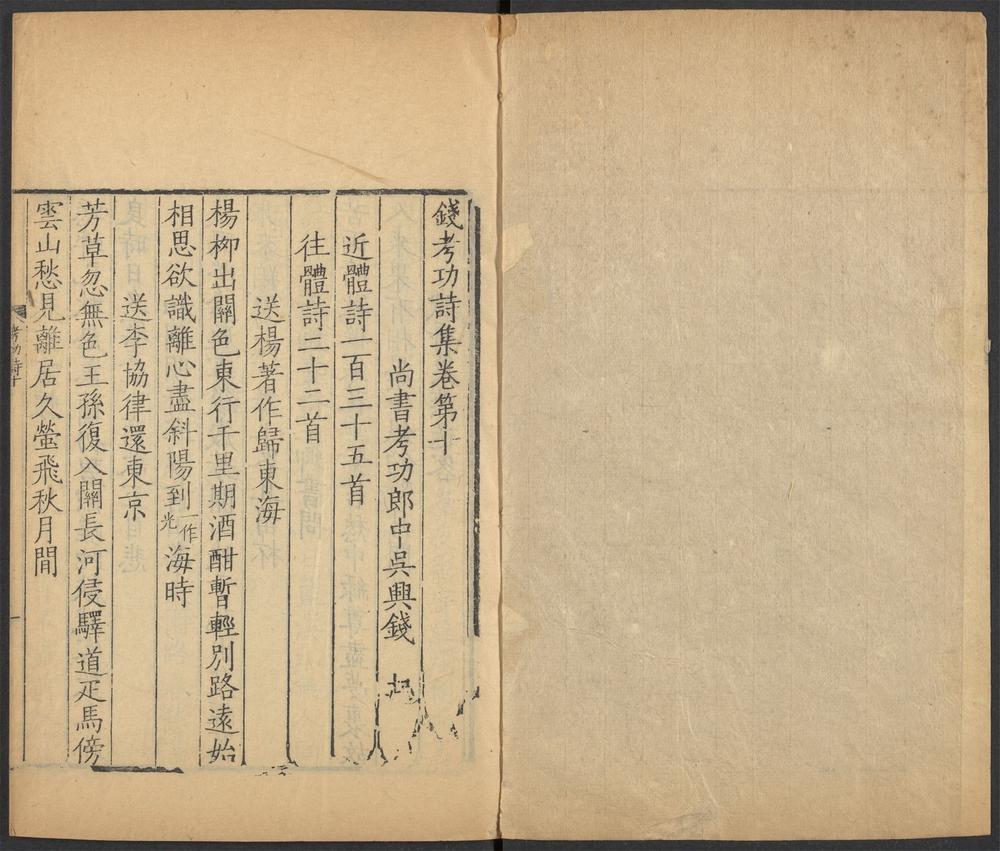 錢考功詩集卷第十
尚書考功郎中吳興錢 起
近體詩一百三十五首
往體詩二十二首
送楊著作歸東海
楊栁出關色東行千里期酒酣暫輕別路遠始
相思欲識離心盡斜陽到一作光海時
送李協律還東京
芳草忽無色王孫復入關長河侵驛道疋馬傍
雲山愁見離居久螢飛秋月間
考功詩十
一